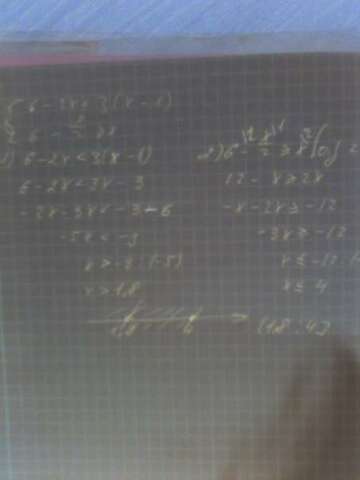 { 6 - 2x < 3(x - 1)
6 - x/2 ≥ x
1) 6 - 2x < 3(x - 1)
6 - 2x < 3x - 3
-2x - 3x < -3 - 6
-5x < -9
x > -9 : (-5)
x > 1,8
2) 6 - x/2 ≥ x
12 - x ≥ 2x
-x - 2x ≥ -12
-3x ≥ -12
x ≤ -12 :
x ≤ 4
1,8 4 (1,8 ; 4]